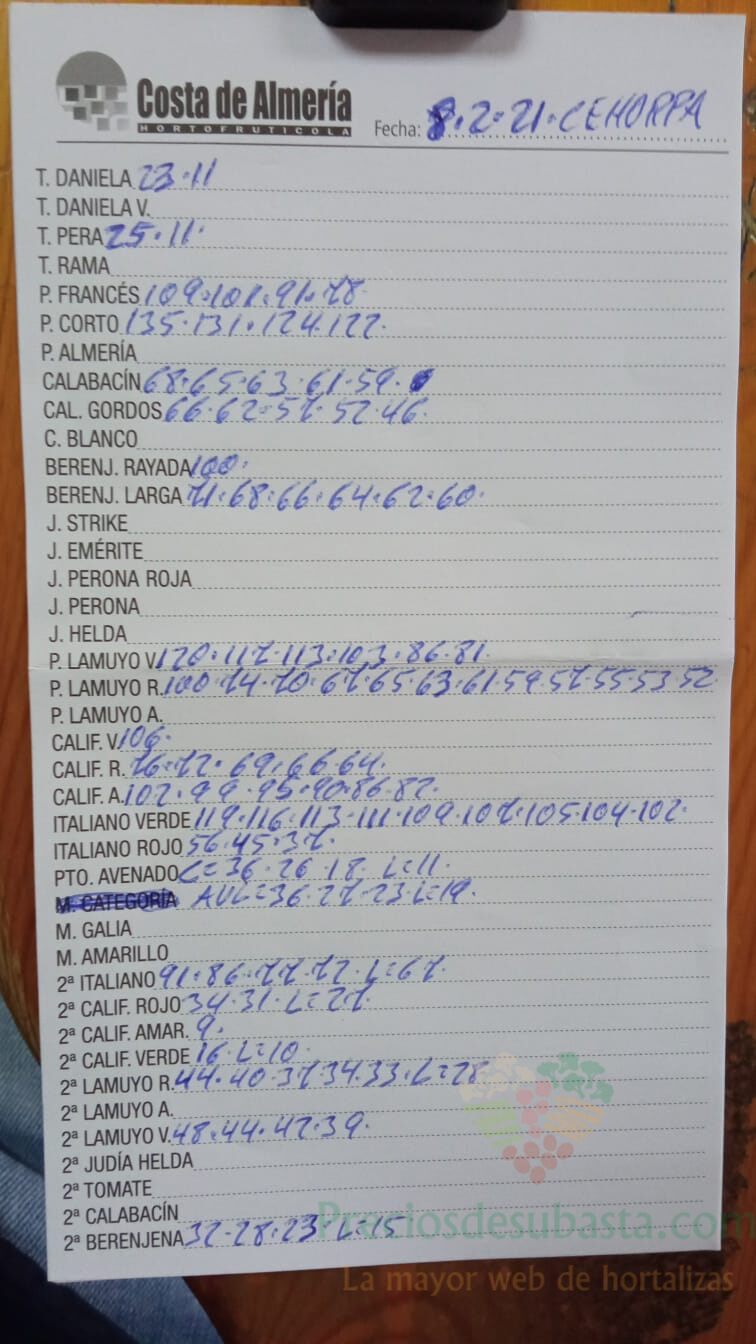 Costa de Almería
HORTOFRUTICOLA
Fecha: 8.2.21.CEHORPA
T. DANIELA 23.11
T. DANIELA V.
T. PERA 25.11.
T. RAMA
P. FRANCÉS 109.101.91.78
P. CORTO 135.131.124.122.
P. ALMERÍA
CALABACÍN 68.65.63.61.59.
CAL. GORDOS 66.62.57.52.46.
C. BLANCO
BERENJ. RAYADA 100.
BERENJ. LARGA 71.68.66.64.62.60.
J. STRIKE
J. EMÉRITE
J. PERONA ROJA
J. PERONA
J. HELDA
P. LAMUYO V. 120.117.113.103.86.81.
P. LAMUYO R. 100.74.70.67.65.63.61.59.57.55.53.52
P. LAMUYO A.
CALIF. V. 106.
CALIF. R. 76.72.69.66.64.
CALIF. A. 102.99.95.90.86.82.
ITALIANO VERDE 119.116.113.111.109.107.105.104.102.
ITALIANO ROJO 56.45.37.
PTO. AVENADO C=36.26.18. L=11.
M. CATEGORÍA AVL=36.27.23.L=19.
M. GALIA
M. AMARILLO
2ª ITALIANO 91.86.77.72.L=67.
2ª CALIF. ROJO 34.31.L=27.
2ª CALIF. AMAR. 9.
2ª CALIF. VERDE 16.L=10.
2ª LAMUYO R. 44.40.37.34.33.L=28
2ª LAMUYO A.
2ª LAMUYO V. 48.44.42.39.
2ª JUDÍA HELDA
2ª TOMATE
2ª CALABACÍN
2ª BERENJENA 32.28.23.L=15
Preciosdesubasta.com
La mayor web de hortalizas